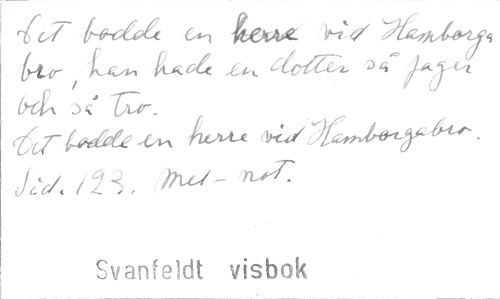 Det bodde en herre vid Hamborga
bro, han hade en dotter så fager
och så tro.
Det bodde en herre vid Hamborgabro.
Sid. 123. Mel-not.
Svanfeldt visbok